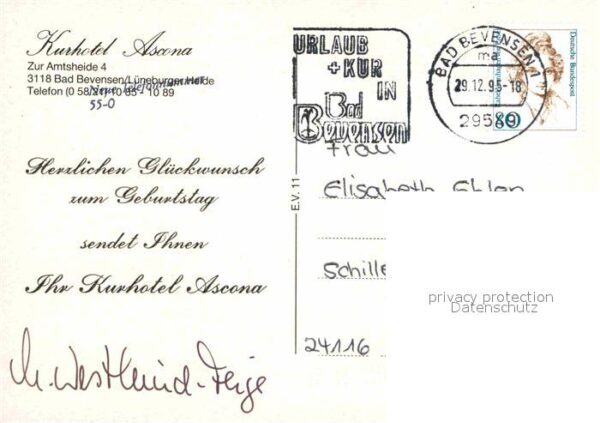 Kurhotel Ascona
Zur Amtsheide 4
3118 Bad Bevensen/Lüneburger Heide
Telefon (0 58 10 85 - 10 89
Neue Telefonnummer
55-0
Herzlichen Glückwunsch
zum Geburtstag
sendet Ihnen
Ihr Kurhotel Ascona
E.V. 11
URLAUB
+ KUR
IN
Bad
Bevensen
BAD BEVENSEN 1
ma
29.12.95-18
29549
Deutsche Bundespost
Frau
Elisabeth
Schille
24116
privacy protection
Datenschutz